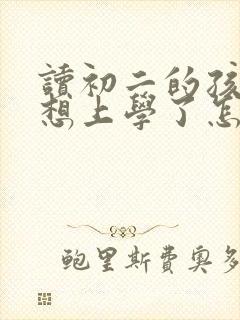 讀初二的孩
想上學了怎
鲍里斯費奧多